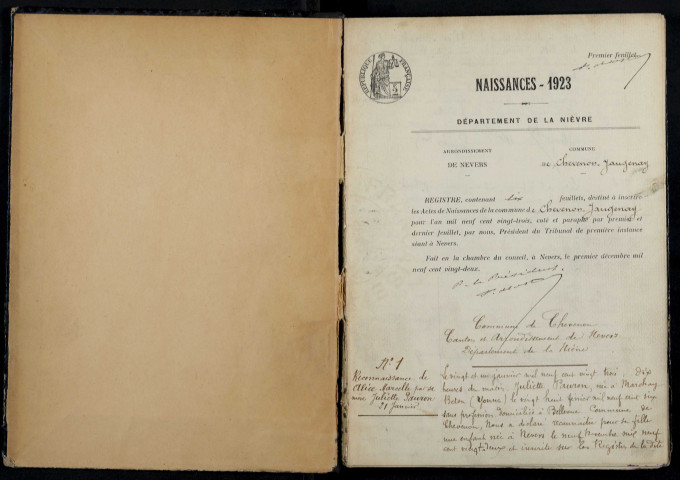 Premier feuillet
RÉPUBLIQUE FRANÇAISE
NAISSANCES - 1923
DÉPARTEMENT DE LA NIÈVRE
ARRONDISSEMENT
DE NEVERS
COMMUNE
de Chevenon-Jaugenay
REGISTRE, contenant six feuillets, destiné à inscrire
les Actes de Naissances de la commune de Chevenon-Jaugenay
pour l'an mil neuf cent vingt-trois, coté et paraphé par premier et
dernier feuillet, par nous, Président du Tribunal de première instance
séant à Nevers.
Fait en la chambre du conseil, à Nevers, le premier décembre mil
neuf cent vingt-deux.
P. le Président.
Commune de Chevenon
Canton et Arrondissement de Nevers
Département de la Nièvre
N° 1
Reconnaissance de
Marcelle par sa
mère Juliette
21 Janvier
Le vingt et un janvier mil neuf cent vingt trois, dix
heures du matin, Juliette née à
(Yonne) le vingt neuf février mil neuf cent
sans profession, domiciliée à Commune de
Chevenon, Nous a déclaré reconnaitre pour sa fille
une enfant née à Nevers le neuf mil neuf
cent vingt-deux et inscrite sur les Registres de la dite